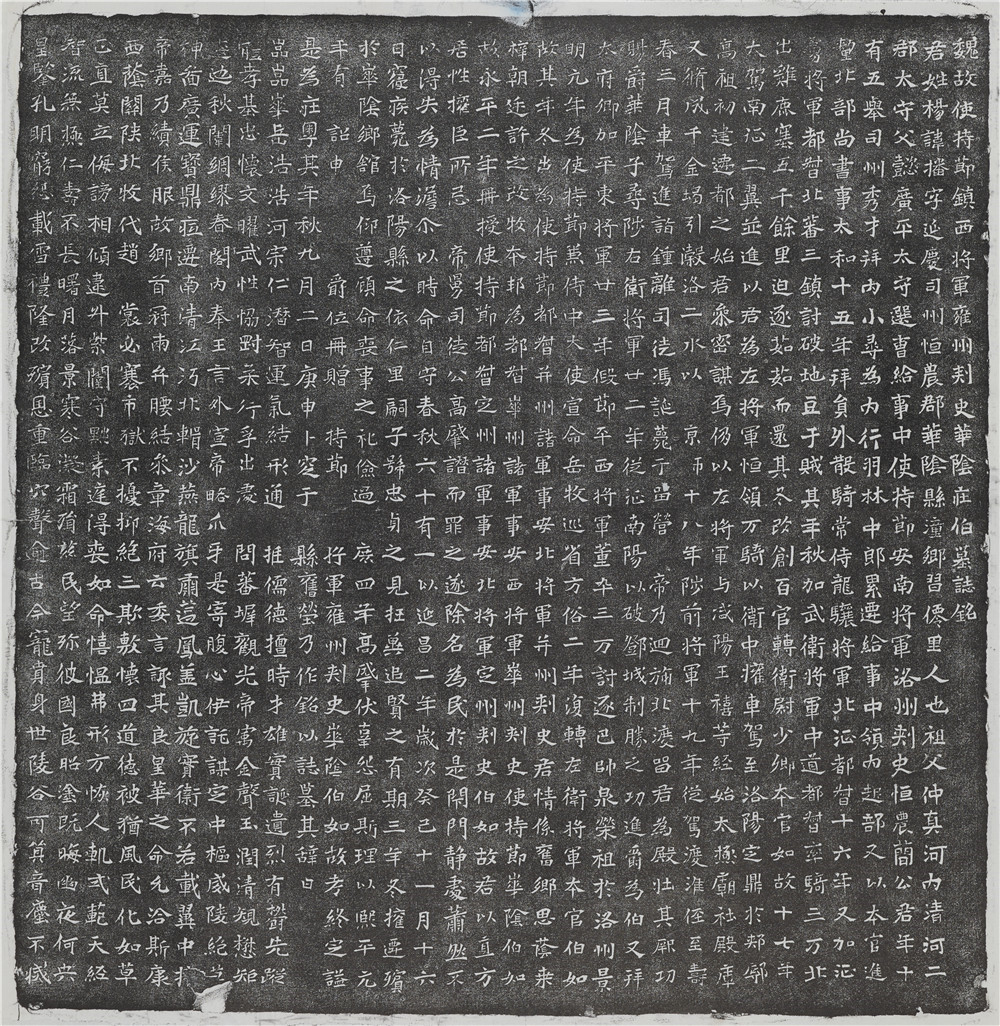 魏故使持節鎮西將軍雍州刾史華陰莊伯墓誌銘
君姓楊諱播字延慶司州恒農郡華陰縣潼鄉習僊里人也祖父仲真河內清河二
郡太守父懿廣平太守選曹給事中使持節安南將軍洛州刾史恒農蕑公君年十
有五舉司州秀才拜內小尋為內行羽林中郎累遷給事中領內起部又以本官進
釐北部尚書事太和十五年拜員外散騎常侍龍驤將軍北征都督十六年又加征
虜將軍都督北蕃三鎮討破地豆于賊其年秋加武衛將軍中道都督率騎三万北
出雞鹿塞五千餘里迫逐茹茹而還其冬改創百官轉衛尉少卿本官如故十七年
大駕南征二翼並進以君為左將軍恒領万騎以衛中擁車駕至洛陽定鼎於郟鄏
高祖初建遷都之始君參密謀焉仍以左將軍与咸陽王禧等經始太極廟社殿庫
又脩成千金堨引瀔洛二水以　京師十八年陟前將軍十九年從駕渡淮俓至壽
春三月車駕進詣鍾離司徒馮誕薨于留營　帝乃迴斾北渡留君為殿壯其鄏功
賜爵華陰子尋陟右衛將軍廿二年從征南陽以破鄧城制勝之功進爵為伯又拜
太府卿加平東將軍廿三年假節平西將軍董卒三万討逐巴帥泉榮祖於洛州景
明元年為使持節兼侍中大使宣命岳牧巡省方俗二年復轉左衛將軍本官伯如
故其年冬出為使持節都督并州諸軍事安北將軍并州刾史君情係舊鄉思蔭桒
梓朝廷許之改牧本邦為都督華州諸軍事安西將軍華州刾史使持節華陰伯如
故永平二年冊授使持節都督定州諸軍事安北將軍定州刾史伯如故君以直方
居性權臣所忌　帝舅司徒公高肇譖而罪之遂除名為民於是閇門靜處蕭然不
以得失為情澹尒以時命自守春秋六十有一以延昌二年歲次癸巳十一月十六
日寢疾薨於洛陽縣之依仁里嗣子號忠貞之見抂㷼追賢之有期三年冬權遷殯
於華陰鄉館焉仰遵顧命喪事之礼儉過　庶四羊高肇伏辜怨屈斯理以熙平元
年有　詔申　爵位冊贈　持節　將軍雍州刾史華陰伯如故考終定謚
是為莊粵其年秋九月二日庚申卜窆于　縣舊塋乃作銘以誌墓其辭曰
嵓嵓華岳浩浩河宗仁潛智運氣結形通　挺儒德擅時才雄實誕遺烈有詧先蹤
體孝基忠懷文曜武性協剛柔行孚出處　閇蕃墀觀光帝宇金聲玉潤清規懋矩
迹秋闈綢繆春閣內奉王言外宣帝略爪牙是寄腹心伊託謀定中樞威陵絕
神啚廣運寶鼎㾗遷南清江沔北輯沙燕龍旗肅莅鳳蓋凱旋實衛不若載翼中
帝嘉乃績侯服故鄉首冠兩弁腰結參章海府六委言諏其良皇華之命允洽斯康
西蔭關陝北牧代趙　裳必褰市獄不擾抑絕三欺敷懷四道德被猶風民化如草
正直莫立侮謗相傾違升紫闥守黜素庭得喪如命憘愠弗形方恢人軌或範天經
智流無極仁壽不長曙月落景寒谷凝霜殞茲民望弥彼國良昭塗既晦幽夜何央
皇鑒孔明窮怨載雪禮隆改殯恩重臨穴聲侖古今寵賁身世陵谷可筭音塵不烕